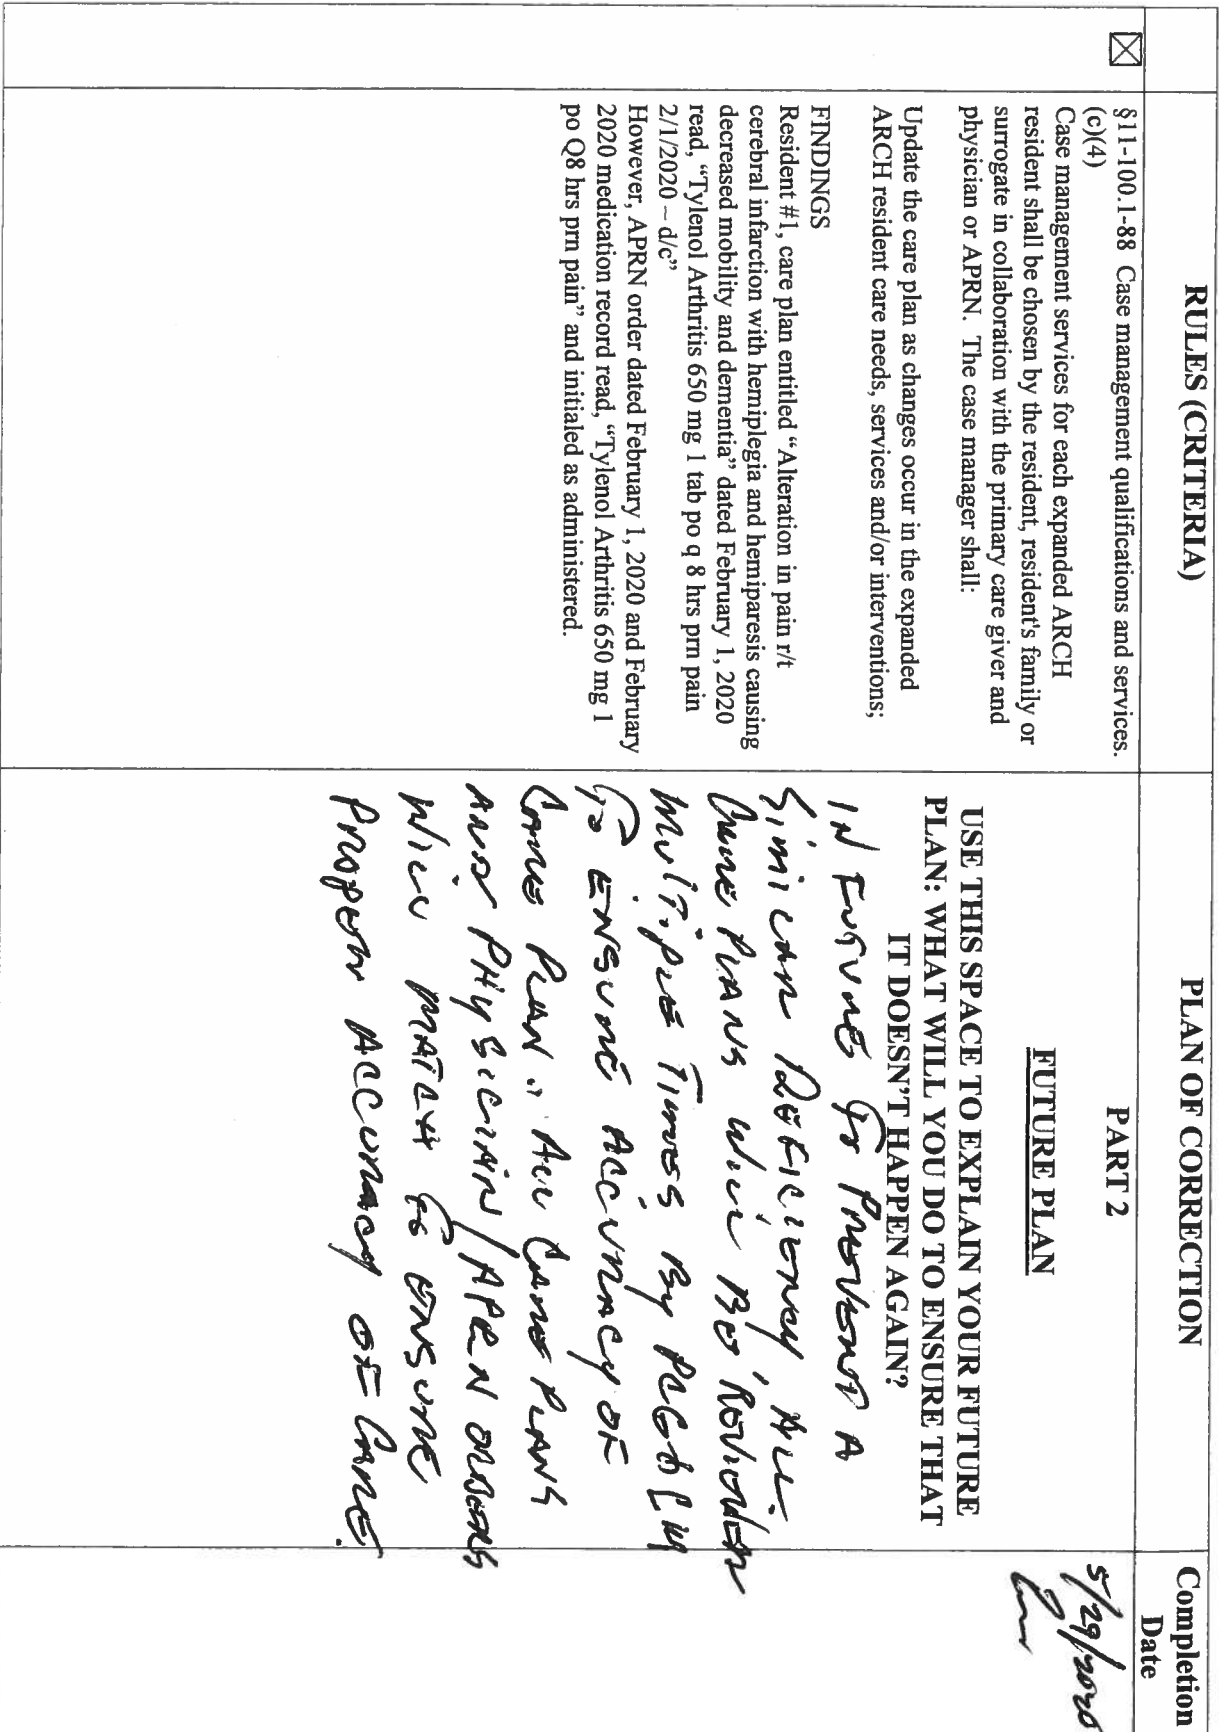 RULES (CRITERIA)
PLAN OF CORRECTION
Completion
Date
☒
§11-100.1-88 Case management qualifications and services.
(c)(4)
Case management services for each expanded ARCH
resident shall be chosen by the resident, resident's family or
surrogate in collaboration with the primary care giver and
physician or APRN. The case manager shall:
Update the care plan as changes occur in the expanded
ARCH resident care needs, services and/or interventions;
FINDINGS
Resident #1, care plan entitled “Alteration in pain r/t
cerebral infarction with hemiplegia and hemiparesis causing
decreased mobility and dementia” dated February 1, 2020
read, “Tylenol Arthritis 650 mg 1 tab po q 8 hrs prn pain
2/1/2020 – d/c”
However, APRN order dated February 1, 2020 and February
2020 medication record read, “Tylenol Arthritis 650 mg 1
po Q8 hrs prn pain” and initialed as administered.
PART 2
FUTURE PLAN
USE THIS SPACE TO EXPLAIN YOUR FUTURE
PLAN: WHAT WILL YOU DO TO ENSURE THAT
IT DOESN'T HAPPEN AGAIN?
IN FUTURE TO PREVENT A
SIMILAR DEFICIENCY, ALL
CARE PLANS WILL BE
MULTIPLE TIMES BY PCG & CM
TO ENSURE ACCURACY OF
CARE PLAN. ALL CARE PLANS
AND PHYSICIAN/APRN ORDERS
WILL MATCH TO ENSURE
PROPER ACCURACY OF CARE.
5/29/2020